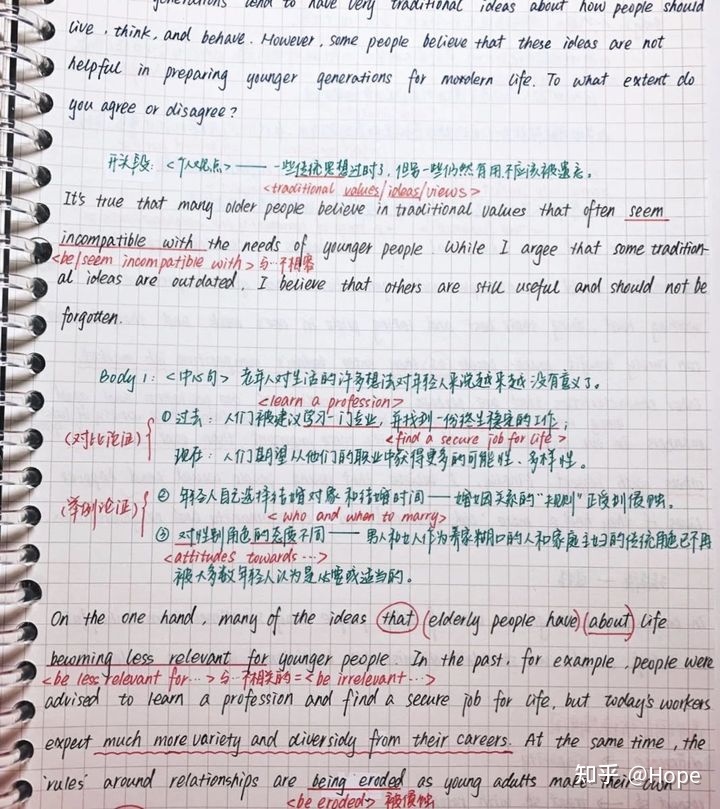 generations tend to have very traditional ideas about how people should
live, think, and behave. However, some people believe that these ideas are not
helpful in preparing younger generations for mordern life. To what extent do
you agree or disagree?
开头段: <个人观点> —— 一些传统思想过时了, 但另一些仍然有用不应该被遗忘。
<traditional values/ideas/views>
It's true that many older people believe in traditional values that often seem
incompatible with the needs of younger people. While I argee that some tradition-
<be/seem incompatible with> 与…不相容
al ideas are outdated, I believe that others are still useful and should not be
forgotten.
Body 1: <中心句> 老年人对生活的许多想法对年轻人来说越来越没有意义了。
<learn a profession>
① 过去: 人们被建议学习一门专业, 并找到一份终生稳定的工作;
(对比论证) <find a secure job for life>
现在: 人们期望从他们的职业中获得更多的可能性、多样性。
(举例论证) ② 年轻人自己选择结婚对象和结婚时间 —— 婚姻关系的"规则"正受到侵蚀。
<who and when to marry>
③ 对性别角色的态度不同 —— 男人和女人作为养家糊口的人和家庭主妇的传统角色已不再
<attitudes towards …>
被大多数年轻人认为是必要或适当的。
On the one hand, many of the ideas (that) (elderly people have) (about) life
becoming less relevant for younger people. In the past, for example, people were
<be less relevant for…> 与…不相关的 = <be irrelevant …>
advised to learn a profession and find a secure job for life, but today's workers
expect much more variety and diversidy from their careers. At the same time, the
'rules' around relationships are being eroded as young adults make their own
<be eroded> 被侵蚀
知乎 @Hope